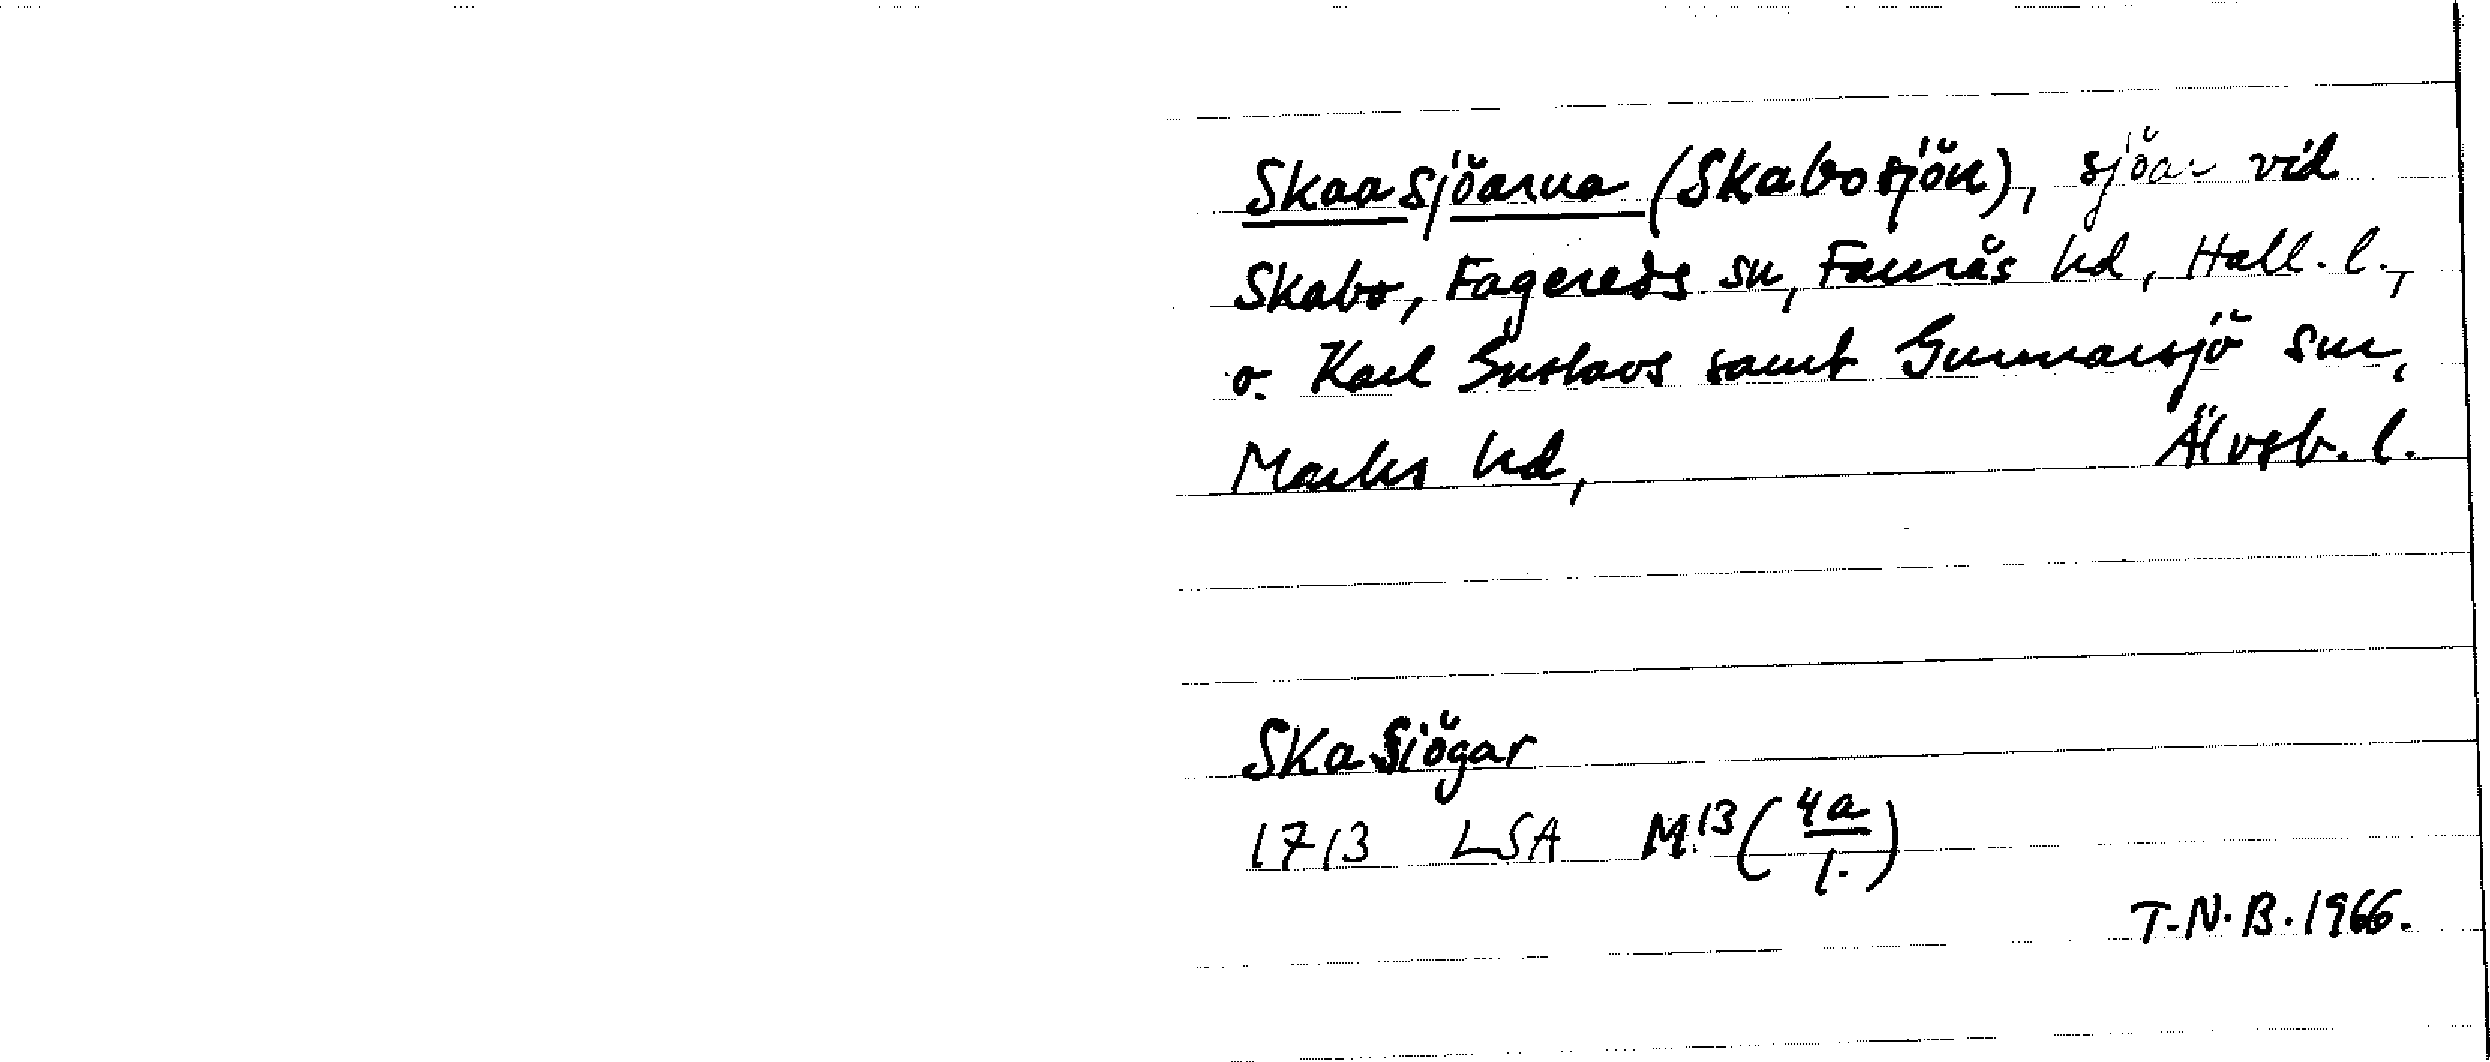 Skaasjöarna (Skabosjön), sjöar vid
Skabo, Fagereds sn, Faurås hd, Hall. l.,
o. Karl Gustavs samt Gunnarsjö snr,
Marks hd, Älvsb. l.
Ska Siögar
1713 LSA M 13 (4a/1.)
T.N.B. 1966.